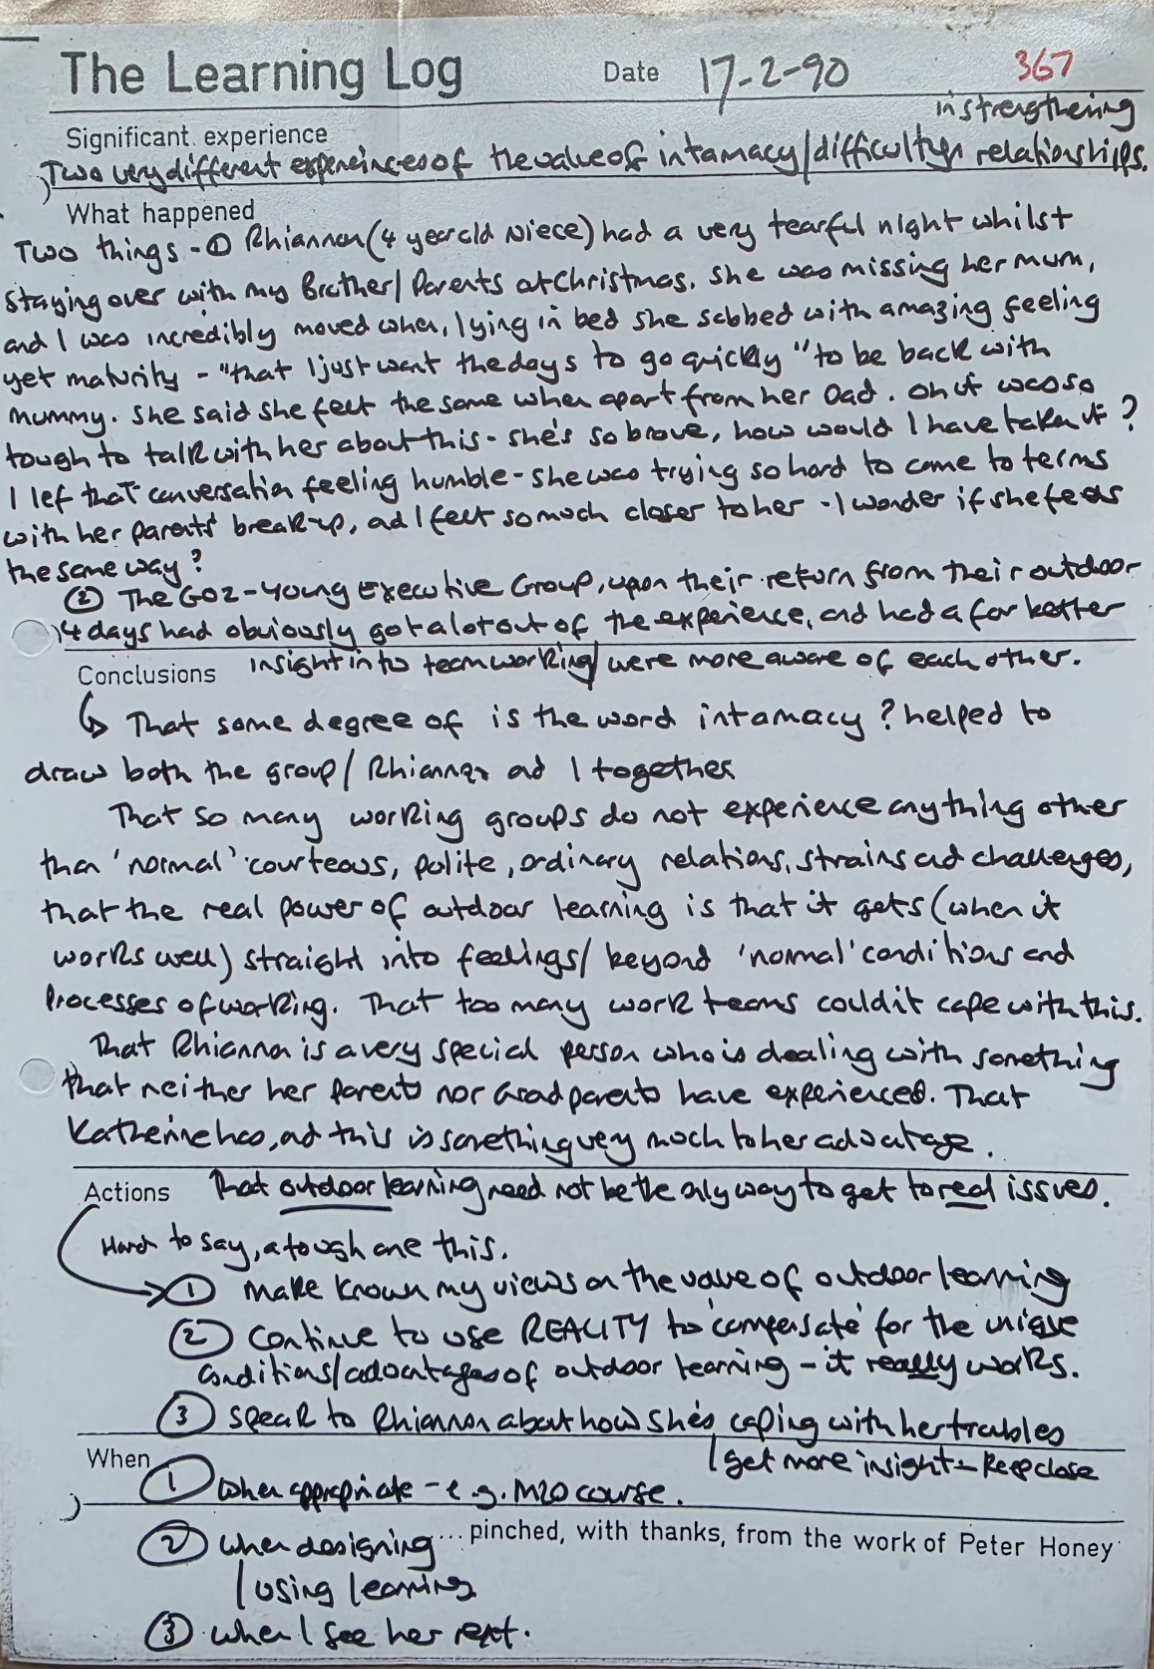 The Learning Log Date 17-2-90 367
in strengthening
Significant experience
Two very different experiences of the value of intamacy/difficulty in relationships.
What happened
Two things - ① Rhiannon (4 year old niece) had a very tearful night whilst
staying over with my Brother/Parents at Christmas. She was missing her mum,
and I was incredibly moved when, lying in bed she sobbed with amazing feeling
yet maturity - "that I just want the days to go quickly" to be back with
mummy. She said she felt the same when apart from her Dad. Oh it was so
tough to talk with her about this - she's so brave, how would I have taken it?
I lef that conversation feeling humble - she was trying so hard to come to terms
with her parents' break-up, ad I felt so much closer to her - I wonder if she feels
the same way?
② The G02 - Young Executive Group, upon their return from their outdoor
4 days had obviously got a lot out of the experience, and had a far better
insight into teamworking/were more aware of each other.
Conclusions
That some degree of is the word intamacy? helped to
draw both the group/Rhiannon ad I together
That so many working groups do not experience anything other
than 'normal' courteous, polite, ordinary relations, strains ad challenges,
that the real power of outdoor learning is that it gets (when it
works well) straight into feelings/beyond 'normal' conditions and
processes of working. That too many work teams couldn't cope with this.
That Rhiannon is a very special person who is dealing with something
that neither her parents nor Grandparents have experienced. That
Katherine has, ad this is something very much to her advantage.
Actions That outdoor learning need not be the only way to get to real issues.
Hard to say, a tough one this.
① make known my views on the value of outdoor learning
② Continue to use REALITY to 'compensate' for the unique
conditions/advantages of outdoor learning - it really works.
③ Speak to Rhiannon about how she's coping with her troubles
/get more insight - keep close
When
① when appropriate - e.g. M20 course.
② when designing ... pinched, with thanks, from the work of Peter Honey
/using learning
③ when I see her next.